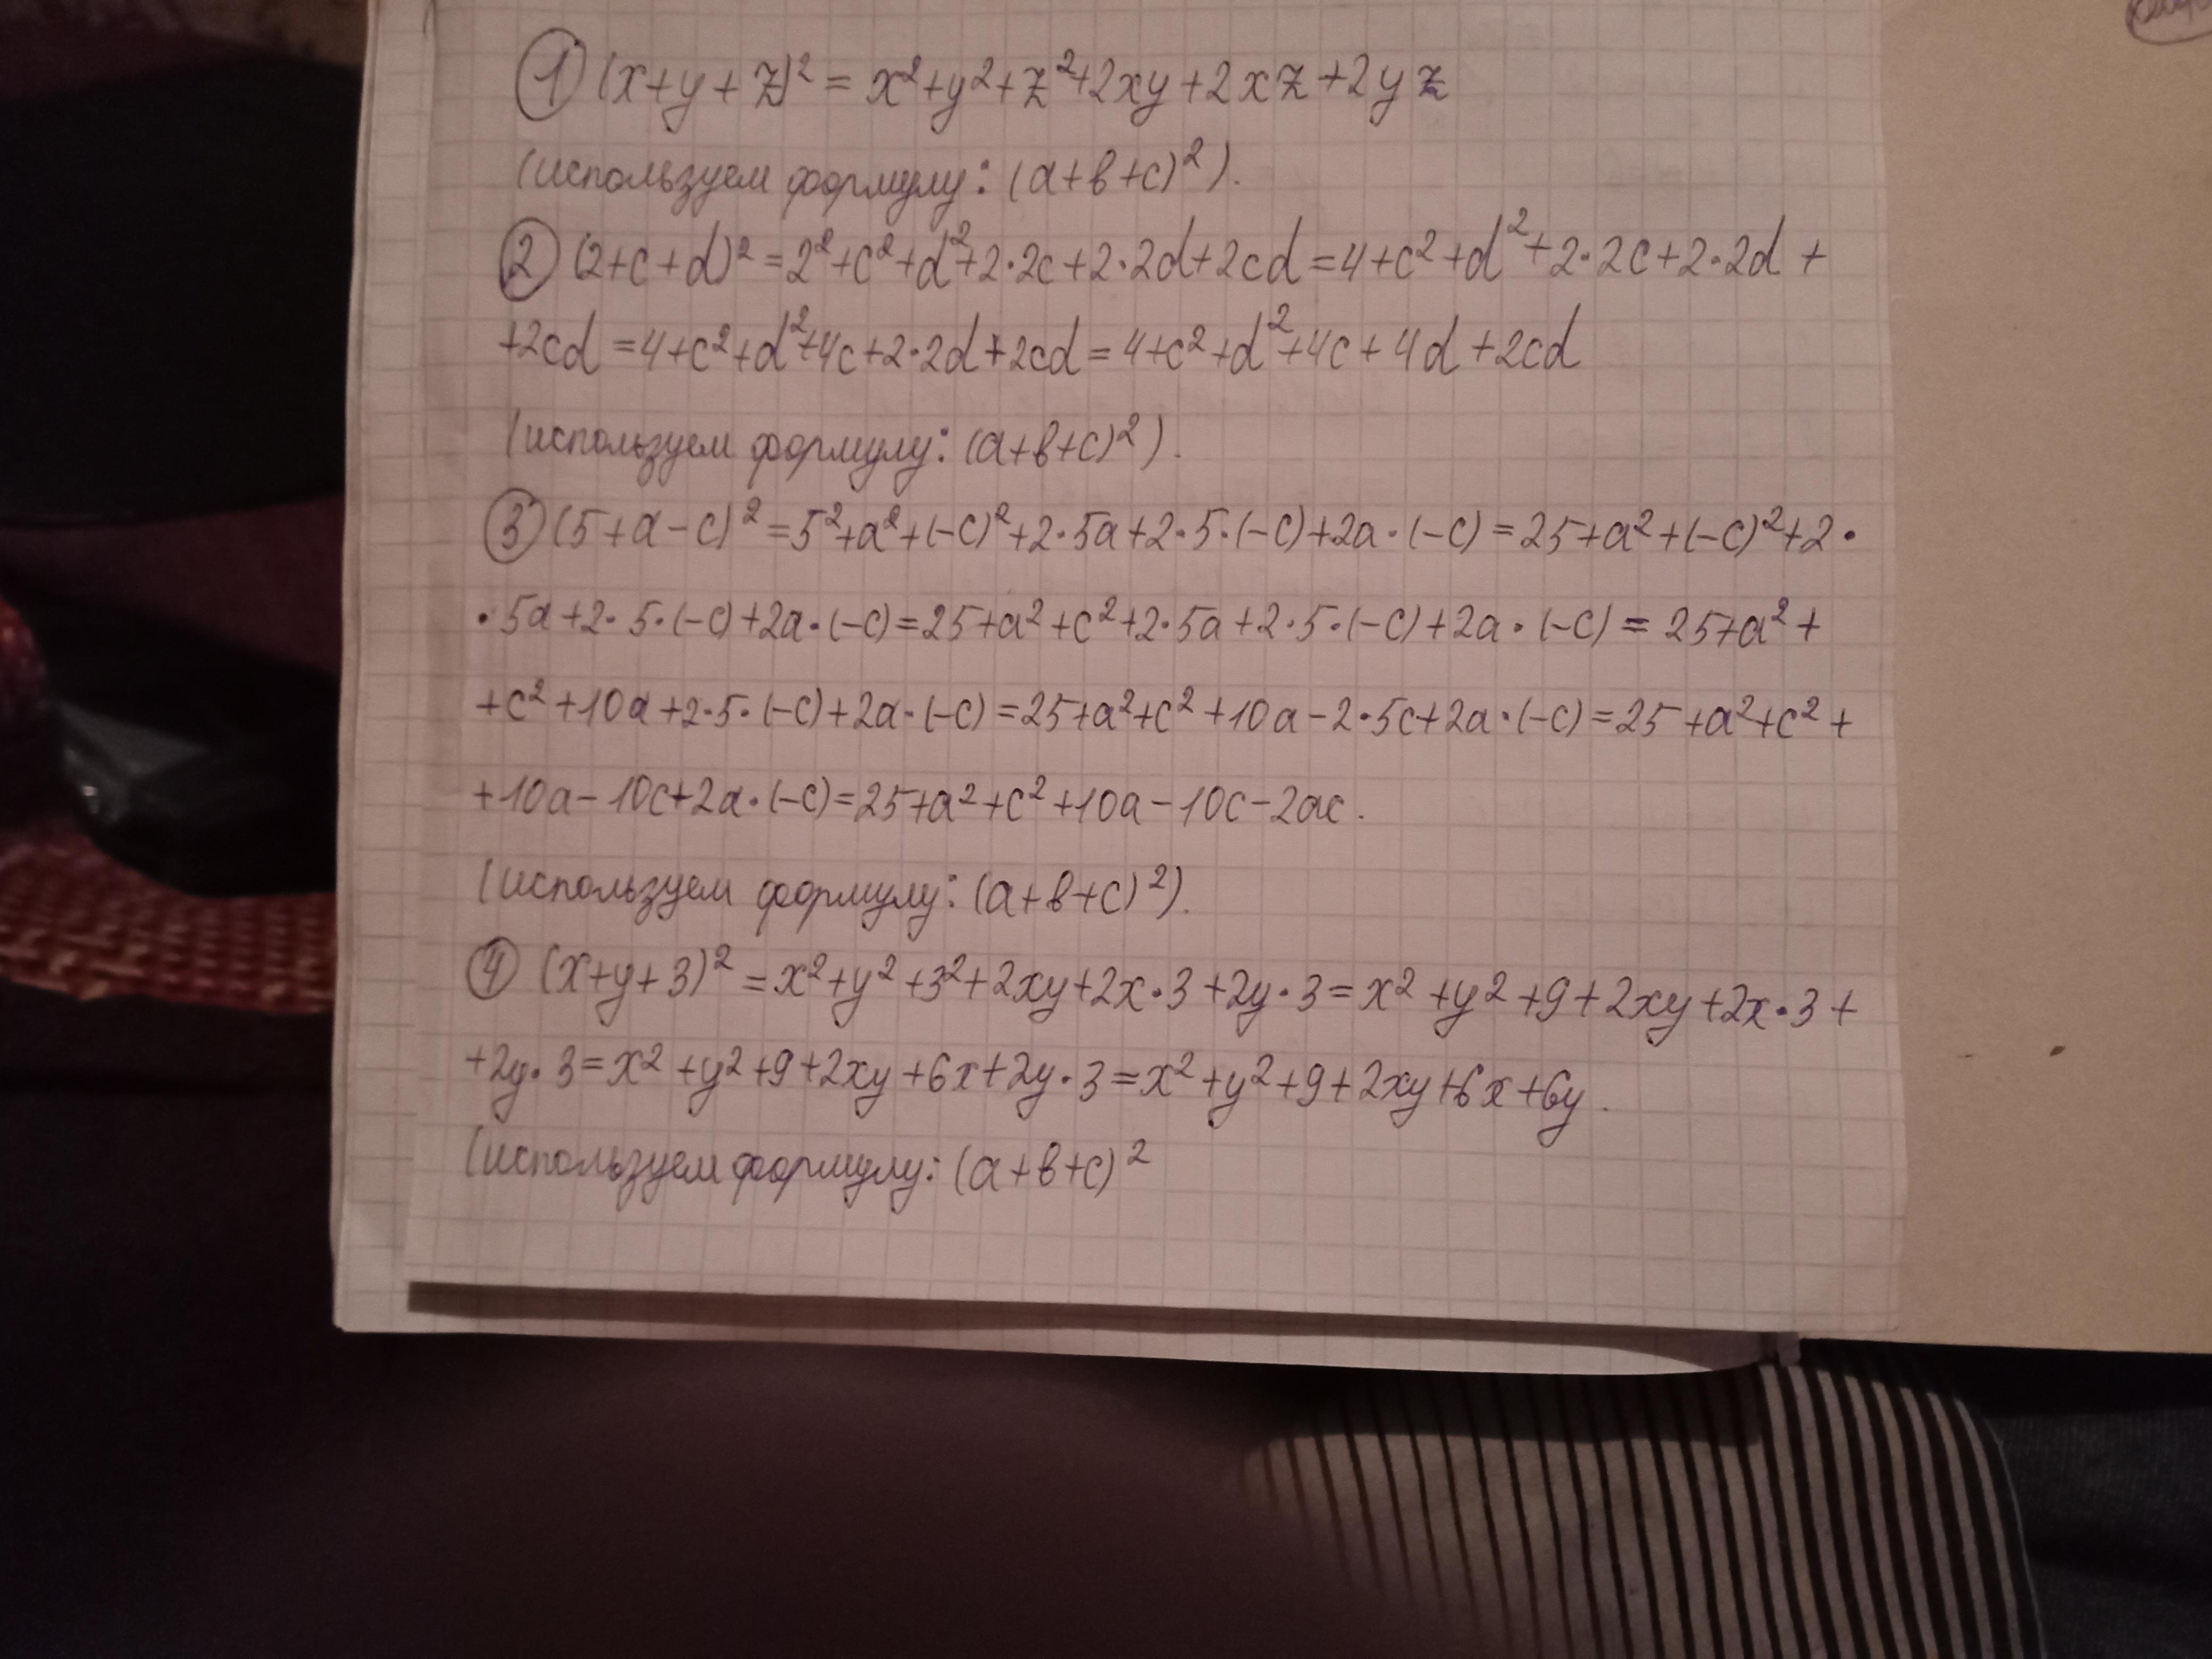 ① (x+y+z)² = x²+y²+z²+2xy+2xz+2yz
(используем формулу: (a+b+c)²).
② (2+c+d)² = 2²+c²+d²+2·2c+2·2d+2cd = 4+c²+d²+2·2c+2·2d +
+2cd = 4+c²+d²+4c+2·2d+2cd = 4+c²+d²+4c+4d+2cd
(используем формулу: (a+b+c)²).
③ (5+a-c)² = 5²+a²+(-c)²+2·5a+2·5·(-c)+2a·(-c) = 25+a²+(-c)²+2·
·5a+2·5·(-c)+2a·(-c) = 25+a²+c²+2·5a+2·5·(-c)+2a·(-c) = 25+a²+
+c²+10a+2·5·(-c)+2a·(-c) = 25+a²+c²+10a-2·5c+2a·(-c) = 25+a²+c²+
+10a-10c+2a·(-c) = 25+a²+c²+10a-10c-2ac.
(используем формулу: (a+b+c)²).
④ (x+y+3)² = x²+y²+3²+2xy+2x·3+2y·3 = x²+y²+9+2xy+2x·3+
+2y·3 = x²+y²+9+2xy+6x+2y·3 = x²+y²+9+2xy+6x+6y.
(используем формулу: (a+b+c)²